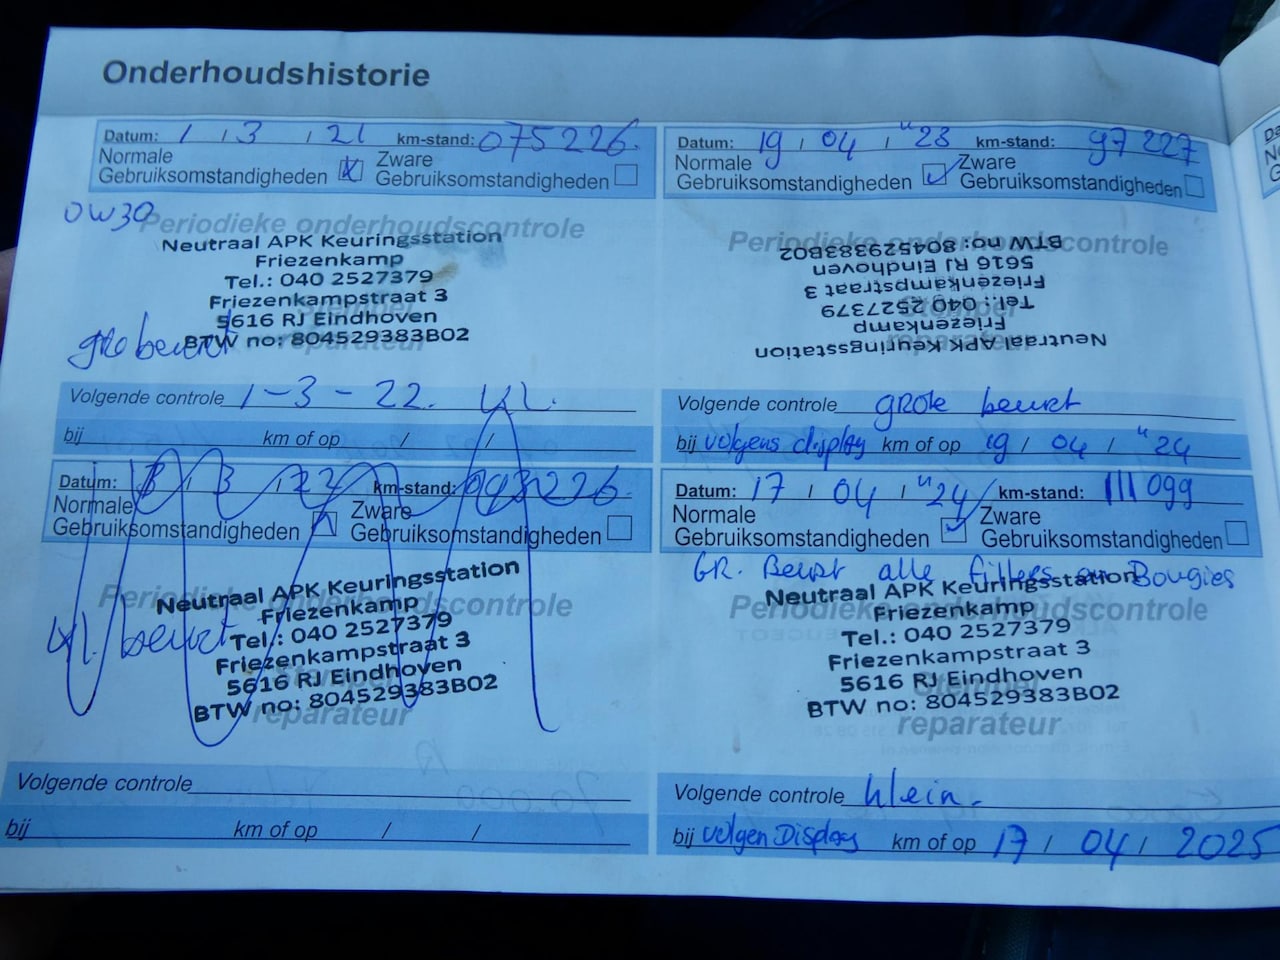 Onderhoudshistorie
Datum: 1 / 3 / 21 km-stand: 075226.
Normale Gebruiksomstandigheden Zware Gebruiksomstandigheden
0W30
Periodieke onderhoudscontrole
Neutraal APK Keuringsstation
Friezenkamp
Tel.: 040 2527379
Friezenkampstraat 3
Stempel
5616 RJ Eindhoven
BTW no: 804529383B02
reparateur
gro beurt
Volgende controle 1-3-22. kl.
bij km of op / /
Datum: 3 / 22 km-stand: 226.
Normale Gebruiksomstandigheden Zware Gebruiksomstandigheden
Periodieke onderhoudscontrole
Neutraal APK Keuringsstation
Friezenkamp
Tel.: 040 2527379
kl. beurt
Friezenkampstraat 3
Stempel
5616 RJ Eindhoven
BTW no: 804529383B02
reparateur
Volgende controle
bij km of op / /
Datum: 19 / 04 / "23 km-stand: 97 227
Normale Gebruiksomstandigheden Zware Gebruiksomstandigheden
Periodieke onderhoudscontrole
Neutraal APK Keuringsstation
Friezenkamp
Tel.: 040 2527379
Friezenkampstraat 3
5616 RJ Eindhoven
BTW no: 804529383B02
Stempel
reparateur
Volgende controle grote beurt
bij volgens display km of op 19 / 04 / "24
Datum: 17 / 04 / "24 km-stand: 111 099
Normale Gebruiksomstandigheden Zware Gebruiksomstandigheden
GR. Beurt alle filters en Bougies
Periodieke onderhoudscontrole
Neutraal APK Keuringsstation
Friezenkamp
Tel.: 040 2527379
Friezenkampstraat 3
5616 RJ Eindhoven
Stempel
BTW no: 804529383B02
reparateur
Volgende controle klein.
bij volgen Display km of op 17 / 04 / 2025